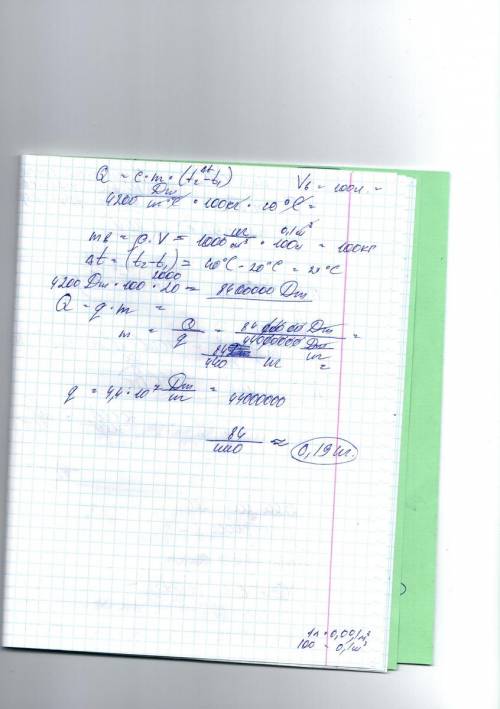 Q = c·m·(t₂-t₁) Δt
V_в = 100л. =
4200 Дж/кг°С · 100кг · 20°С =
m_в = ρ·V = 1000 кг/м³ · 100л 0,1м³ = 100кг
Δt = (t₂-t₁) = 40°С - 20°С = 20°С
2000
4200 Дж · 100 · 20 = 8400000 Дж
Q = q·m =
m = Q/q = 84 000 00 Дж / 44000000 Дж/кг =
84 / 440 кг =
q = 4,4·10⁷ Дж/кг = 44000000
84/440 ≈ 0,19 кг.
1л = 0,001м³
100 - 0,1м³